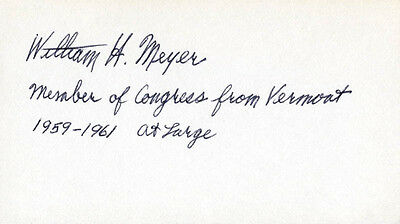 William H. Meyer
Member of Congress from Vermont
1959-1961 at Large